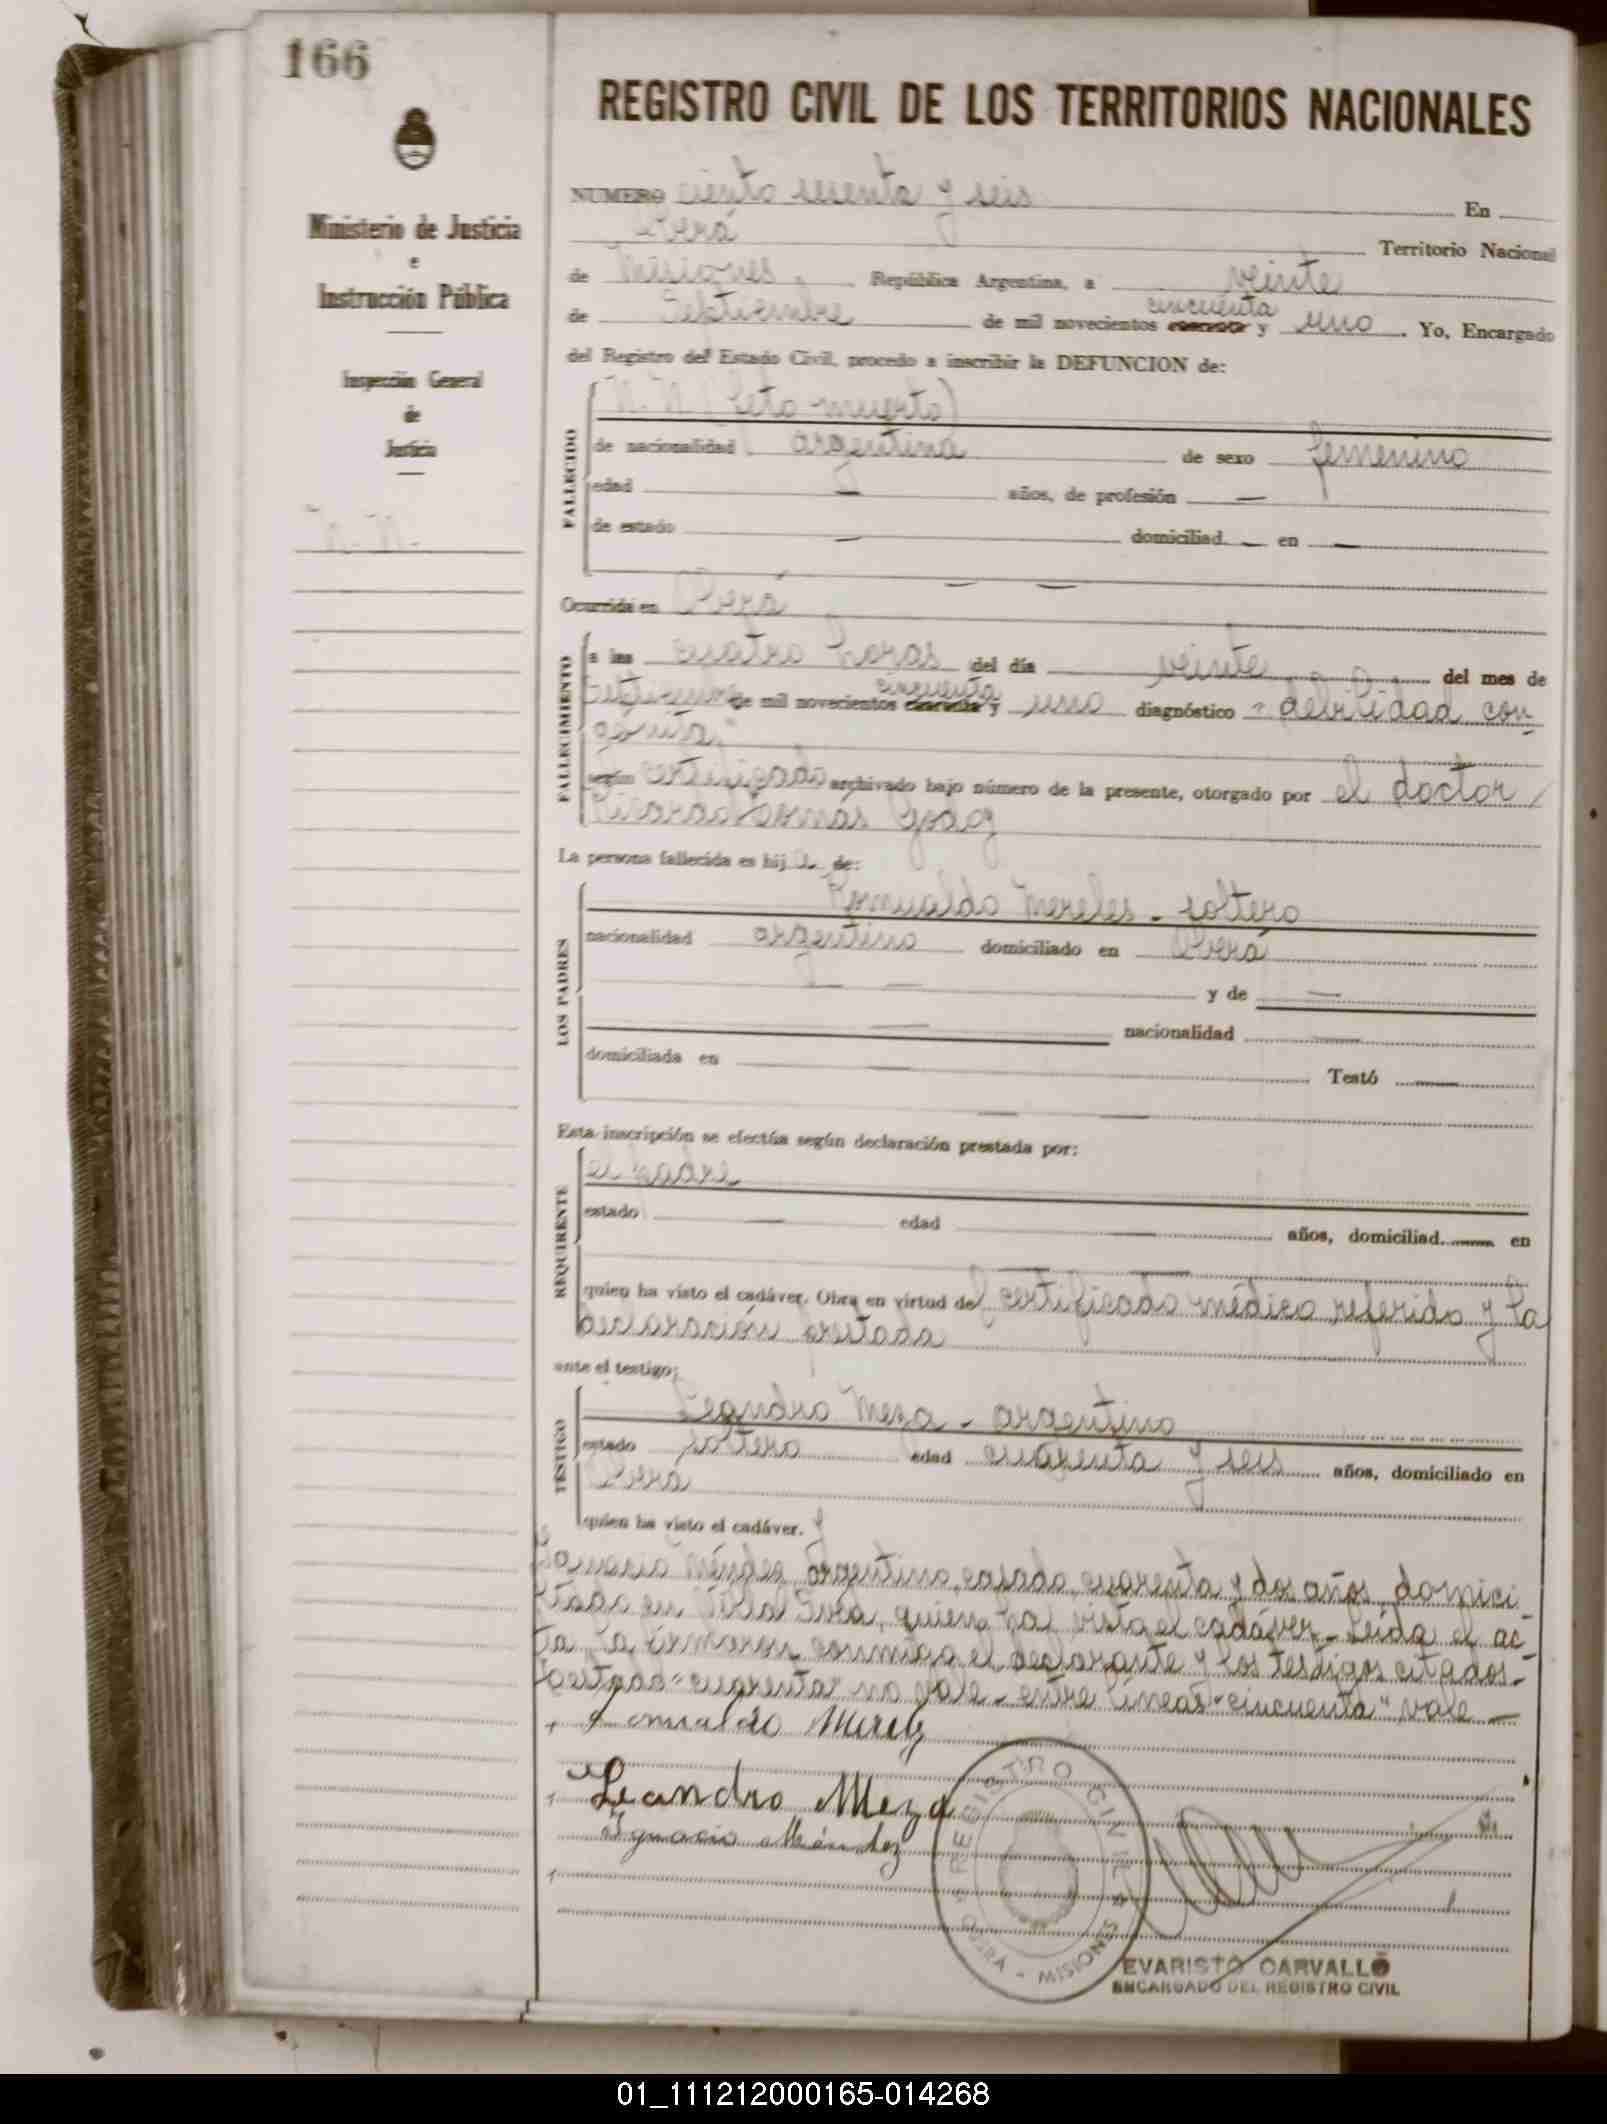 166
REGISTRO CIVIL DE LOS TERRITORIOS NACIONALES
Ministerio de Justicia
e
Instrucción Pública
Inspección General
de
Justicia
N. N.
NUMERO ciento sesenta y seis En
Oberá Territorio Nacional
de Misiones, República Argentina, a veinte
de Septiembre de mil novecientos cincuenta y uno. Yo, Encargado
del Registro del Estado Civil, procedo a inscribir la DEFUNCION de:
FALLECIDO
N. N. (feto muerto)
de nacionalidad argentina de sexo femenino
edad — años, de profesión —
de estado — domiciliad — en —
— —
Ocurrida en Oberá
FALLECIMIENTO
a las cuatro horas del día veinte del mes de
Septiembre de mil novecientos cincuenta y uno diagnóstico "debilidad con-
génita"
según certificado archivado bajo número de la presente, otorgado por el doctor
Ricardo Tomás
La persona fallecida es hija de:
LOS PADRES
Romualdo Mereles - soltero
nacionalidad argentino domiciliado en Oberá
— — y de —
— nacionalidad —
domiciliada en — Testó —
— —
Esta inscripción se efectúa según declaración prestada por:
REQUIRENTE
el padre
estado — edad — años, domiciliad — en
—
quien ha visto el cadáver. Obra en virtud del certificado médico referido y la
declaración prestada
ante el testigo:
TESTIGO
Leandro Meza - argentino
estado soltero edad cuarenta y seis años, domiciliado en
Oberá
quien ha visto el cadáver. y
Ignacio Méndez, argentino, casado, cuarenta y dos años, domici
liado en Villa quien ha visto el cadáver - Leída el ac-
ta la firmaron conmigo el declarante y los testigos citados.-
Testado "cuarenta" no vale - entre líneas "cincuenta" vale —
Romualdo Merelz
Leandro Meza
Ignacio Méndez
REGISTRO CIVIL
OBERA - MISIONES
EVARISTO CARVALLO
ENCARGADO DEL REGISTRO CIVIL
01_111212000165-014268